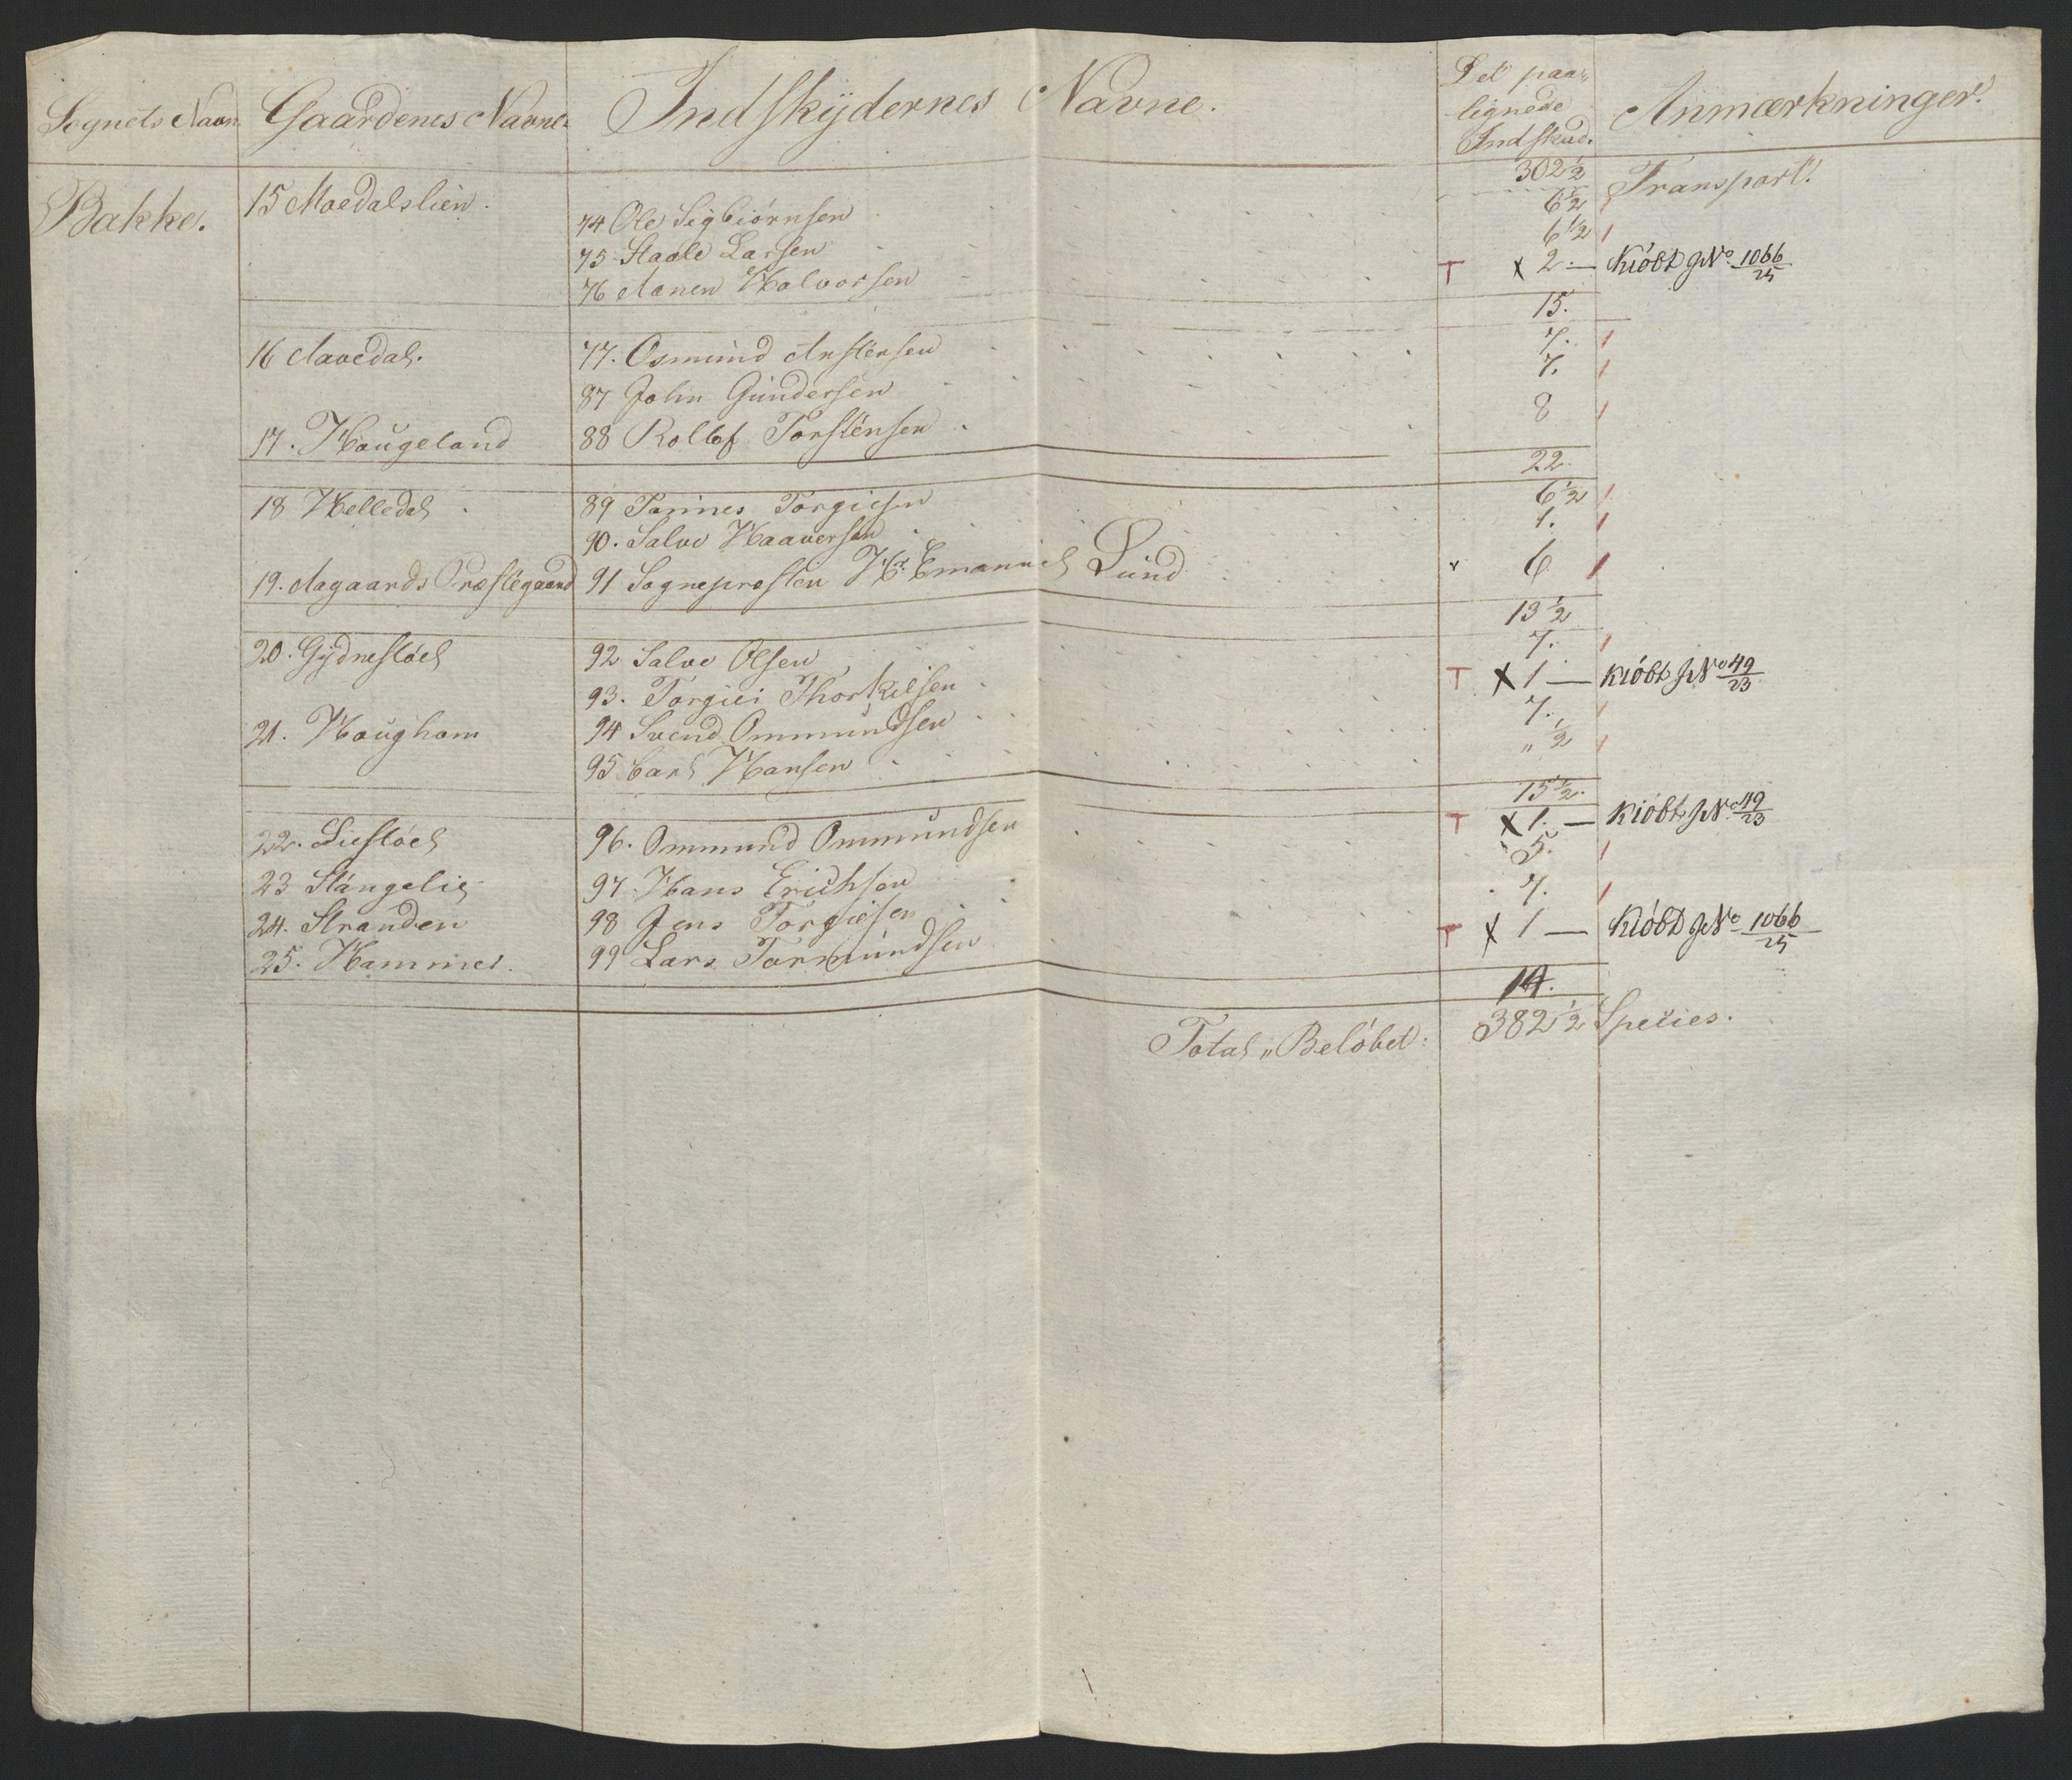 Sognets Navn Gaardenes Navne Indskÿdernes Navne. Det paa- Anmærkninger.
lignede
Indskud.
302½ Transport.
Bakke. 15 Moedalslien. 74 Ole Sigbiörnsen 6½
75 Staale Larsen 6½
76 Aanen Halvorsen T x 2. — Kiöbt JNo 1066/25
15.
16 Aavedal. 77. Osmund Anstensen 7.
87 John Gundersen 7.
17. Haugeland 88 Rollef Torstensen 8
22.
18 Helledal 89 Tønnes Torgiesen 6½
90. Salve Haaversen 1.
19. Aagaards Præstegaard 91 Sogneprosten Hr. Emanuel Lund 6
13½
20. Gÿdnestöel 92 Salve Olsen 7.
93. Torgiei Thorkilsen T x 1 — Kiöbt JNo 49/23
21. Haughom 94 Svend Ommundsen 7.
95 Carl Hansen " ½
15½.
22. Liestöel 96. Ommund Ommundsen T x 1. — Kiöbt JNo 49/23
23 Stangelie 97. Hans Erichsen 5.
24. Stranden 98 Jens Torgiesen 7.
25. Hammer. 99 Lars Tormundsen T x 1 — Kiöbt JNo 1066/25
14.
Total,, Belöbet: 382½ Species.